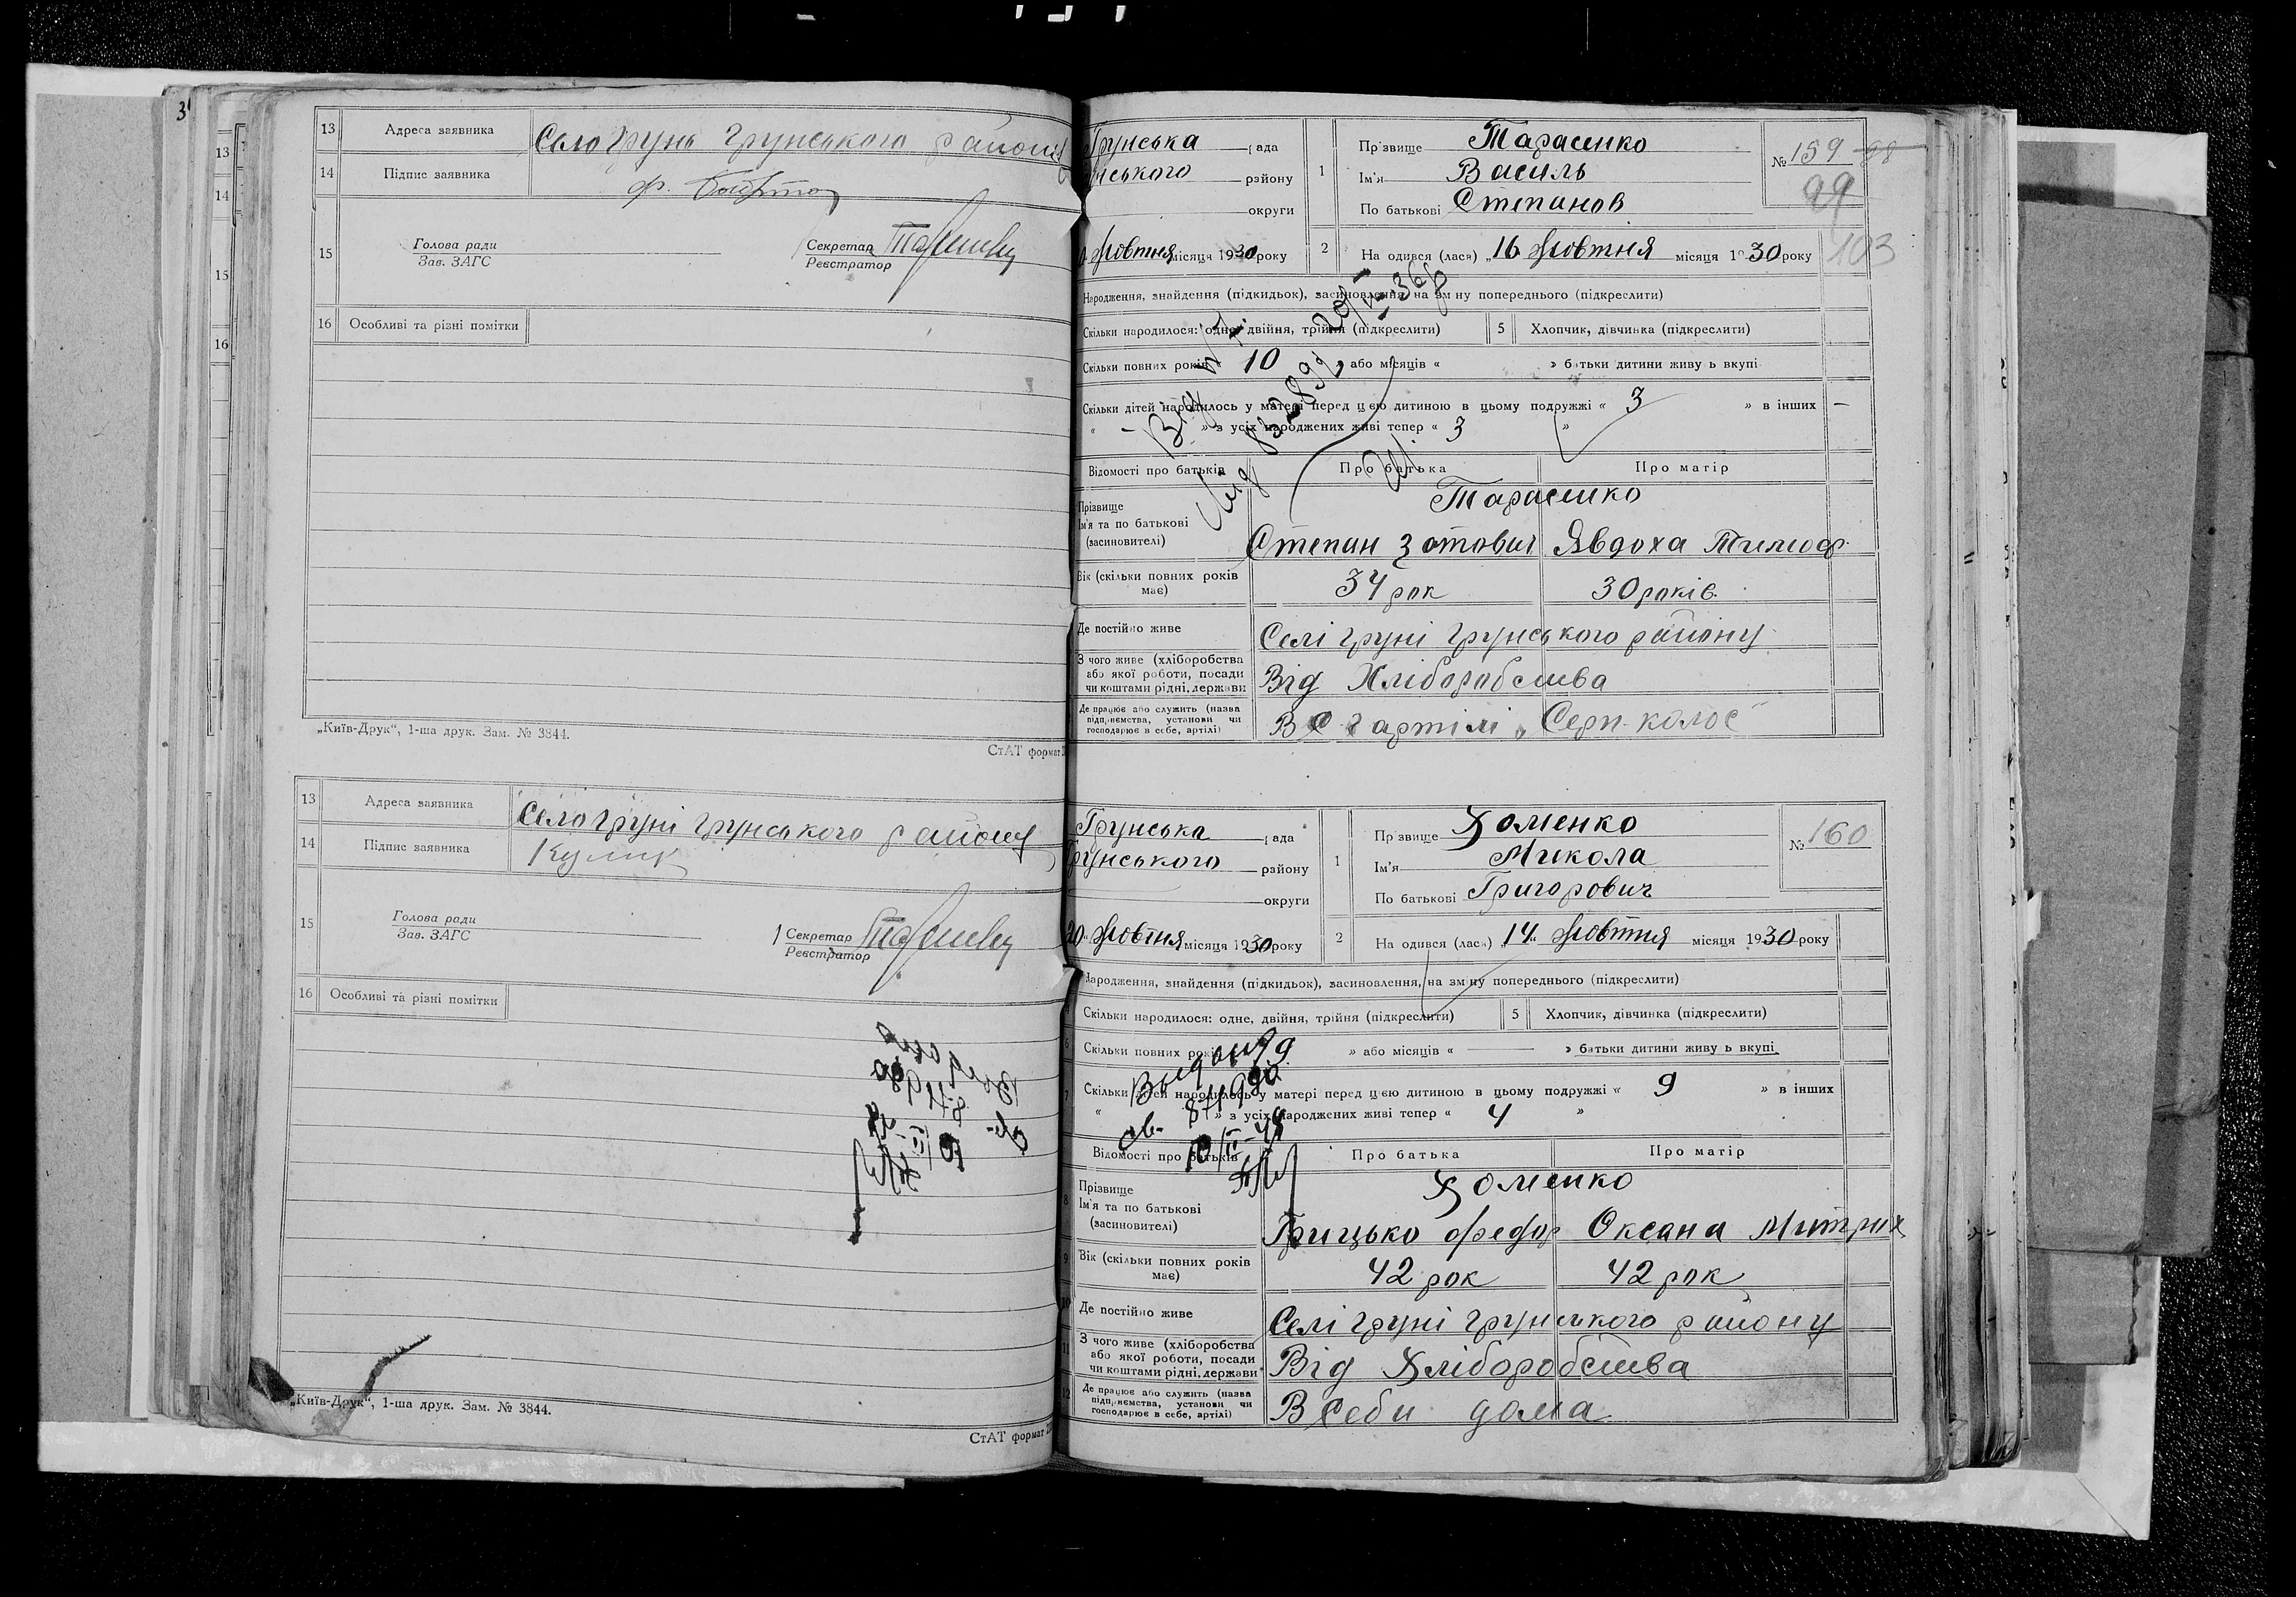 13 Адреса заявника Село Грунь Грунського району
14 Підпис заявника
15 Голова ради
Зав. ЗАГС
Секретар
Реєстратор
16 Особливі та різні помітки
„Київ-Друк“, 1-ша друк. Зам. № 3844.
СтАТ формат
13 Адреса заявника Село Груні Грунського району
14 Підпис заявника Кулик
15 Голова ради
Зав. ЗАГС
Секретар
Реєстратор
16 Особливі та різні помітки
„Київ-Друк“, 1-ша друк. Зам. № 3844.
СтАТ формат
Грунська рада
району
округи
1 Прізвище Тарасенко
Ім'я Василь
По батькові Степанов
№ 159 98
99
103
Жовтня місяця 1930 року
2 Народився (лася) „16 Жовтня місяця 1930 року
Народження, знайдення (підкидьок), засиновлення, на зміну попереднього (підкреслити)
Скільки народилося: одне, двійня, трійня (підкреслити) 5 Хлопчик, дівчинка (підкреслити)
Скільки повних років 10 » або місяців « » батьки дитини живуть вкупі
Скільки дітей народилось у матері перед цією дитиною в цьому подружжі « 3 » в інших —
« – » з усіх народжених живі тепер « 3 »
Відомості про батьків Про батька Про матір
Прізвище Тарасенко
Ім'я та по батькові
(засиновителі) Степан Зотович Явдоха Тимоф.
Вік (скільки повних років має) 34 рок 30 років
Де постійно живе Селі Груні Грунського району
З чого живе (хліборобства
або якої роботи, посади
чи коштами рідні, держави Від Хліборобства
Де працює або служить (назва
підприємства, установи чи
господарює в себе, артілі) В с г артілі „Серп-колос“
Грунська рада
Грунського району
округи
1 Прізвище Хоменко
Ім'я Микола
По батькові Григорович
№ 160
20 Жовтня місяця 1930 року
2 Народився (лася) „14“ Жовтня місяця 1930 року
Народження, знайдення (підкидьок), засиновлення, на зміну попереднього (підкреслити)
Скільки народилося: одне, двійня, трійня (підкреслити) 5 Хлопчик, дівчинка (підкреслити)
Скільки повних років 19 » або місяців « » батьки дитини живуть вкупі
Скільки дітей народилось у матері перед цією дитиною в цьому подружжі « 9 » в інших
« » з усіх народжених живі тепер « 4 »
Відомості про батьків Про батька Про матір
Прізвище Хоменко
Ім'я та по батькові
(засиновителі) Грицько Федор Оксана Митрих
Вік (скільки повних років має) 42 рок 42 рок
Де постійно живе Селі Груні Грунського району
З чого живе (хліборобства
або якої роботи, посади
чи коштами рідні, держави Від Хліборобства
Де працює або служить (назва
підприємства, установи чи
господарює в себе, артілі) В себи дома